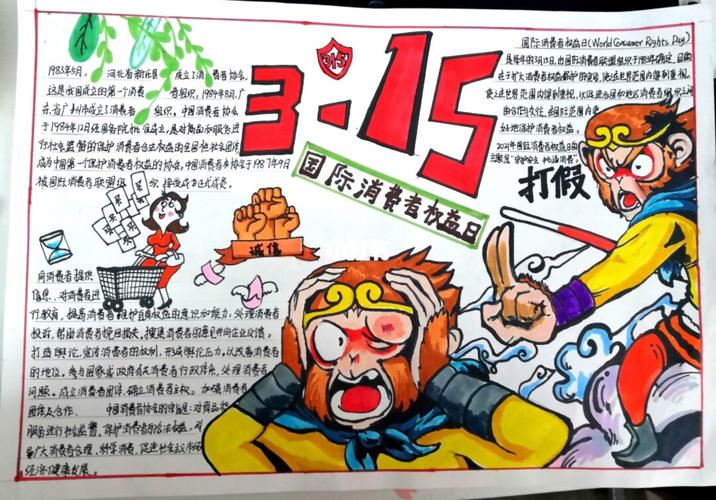 315
3.15
国际消费者权益日
国际消费者权益日(World Consumer Rights Day)
打假
诚信
1983年5月, 河北省新乐县 成立了消费者协会,
这是我国成立的第一个消费 者组织。1984年8月,广
东省广州市成立了消费者 组织。中国消费者协会
于1984年12月经国务院批准成立,是对商品和服务进
行社会监督的保护消费者合法权益的全国性社会团体
成为中国第一个保护消费者权益的协会。中国消费者协会于1987年9月
被国际消费者联盟组 织 接受成为正式成员。
是每年的3月15日,由国际消费者联盟组织于1983年确定,目的
在于扩大消费者权益
的合作与交往,在国际范围内更
好地保护消费者权益。
2021年国际消费者权益日的
向消费者提供
信息,对消费者进
行教育,提高消费者维护自身权益的意识和能力,处理消费者
投诉,帮助消费者挽回损失,搜集消费者的意见并向企业反馈,
打造舆论,宣传消费者的权利,形成舆论压力,以改善消费者
的地位。参与国家或政府有关消费者
问题。成立消费者团体,确立消费者主权。加强消费者
团体及合作. 中国消费者协会的宗旨:对商品和
服务进行社会监督,保护消费者的合法权益,
广大消费者合理、科学消费,促进社会主义市场
经济健康发展。